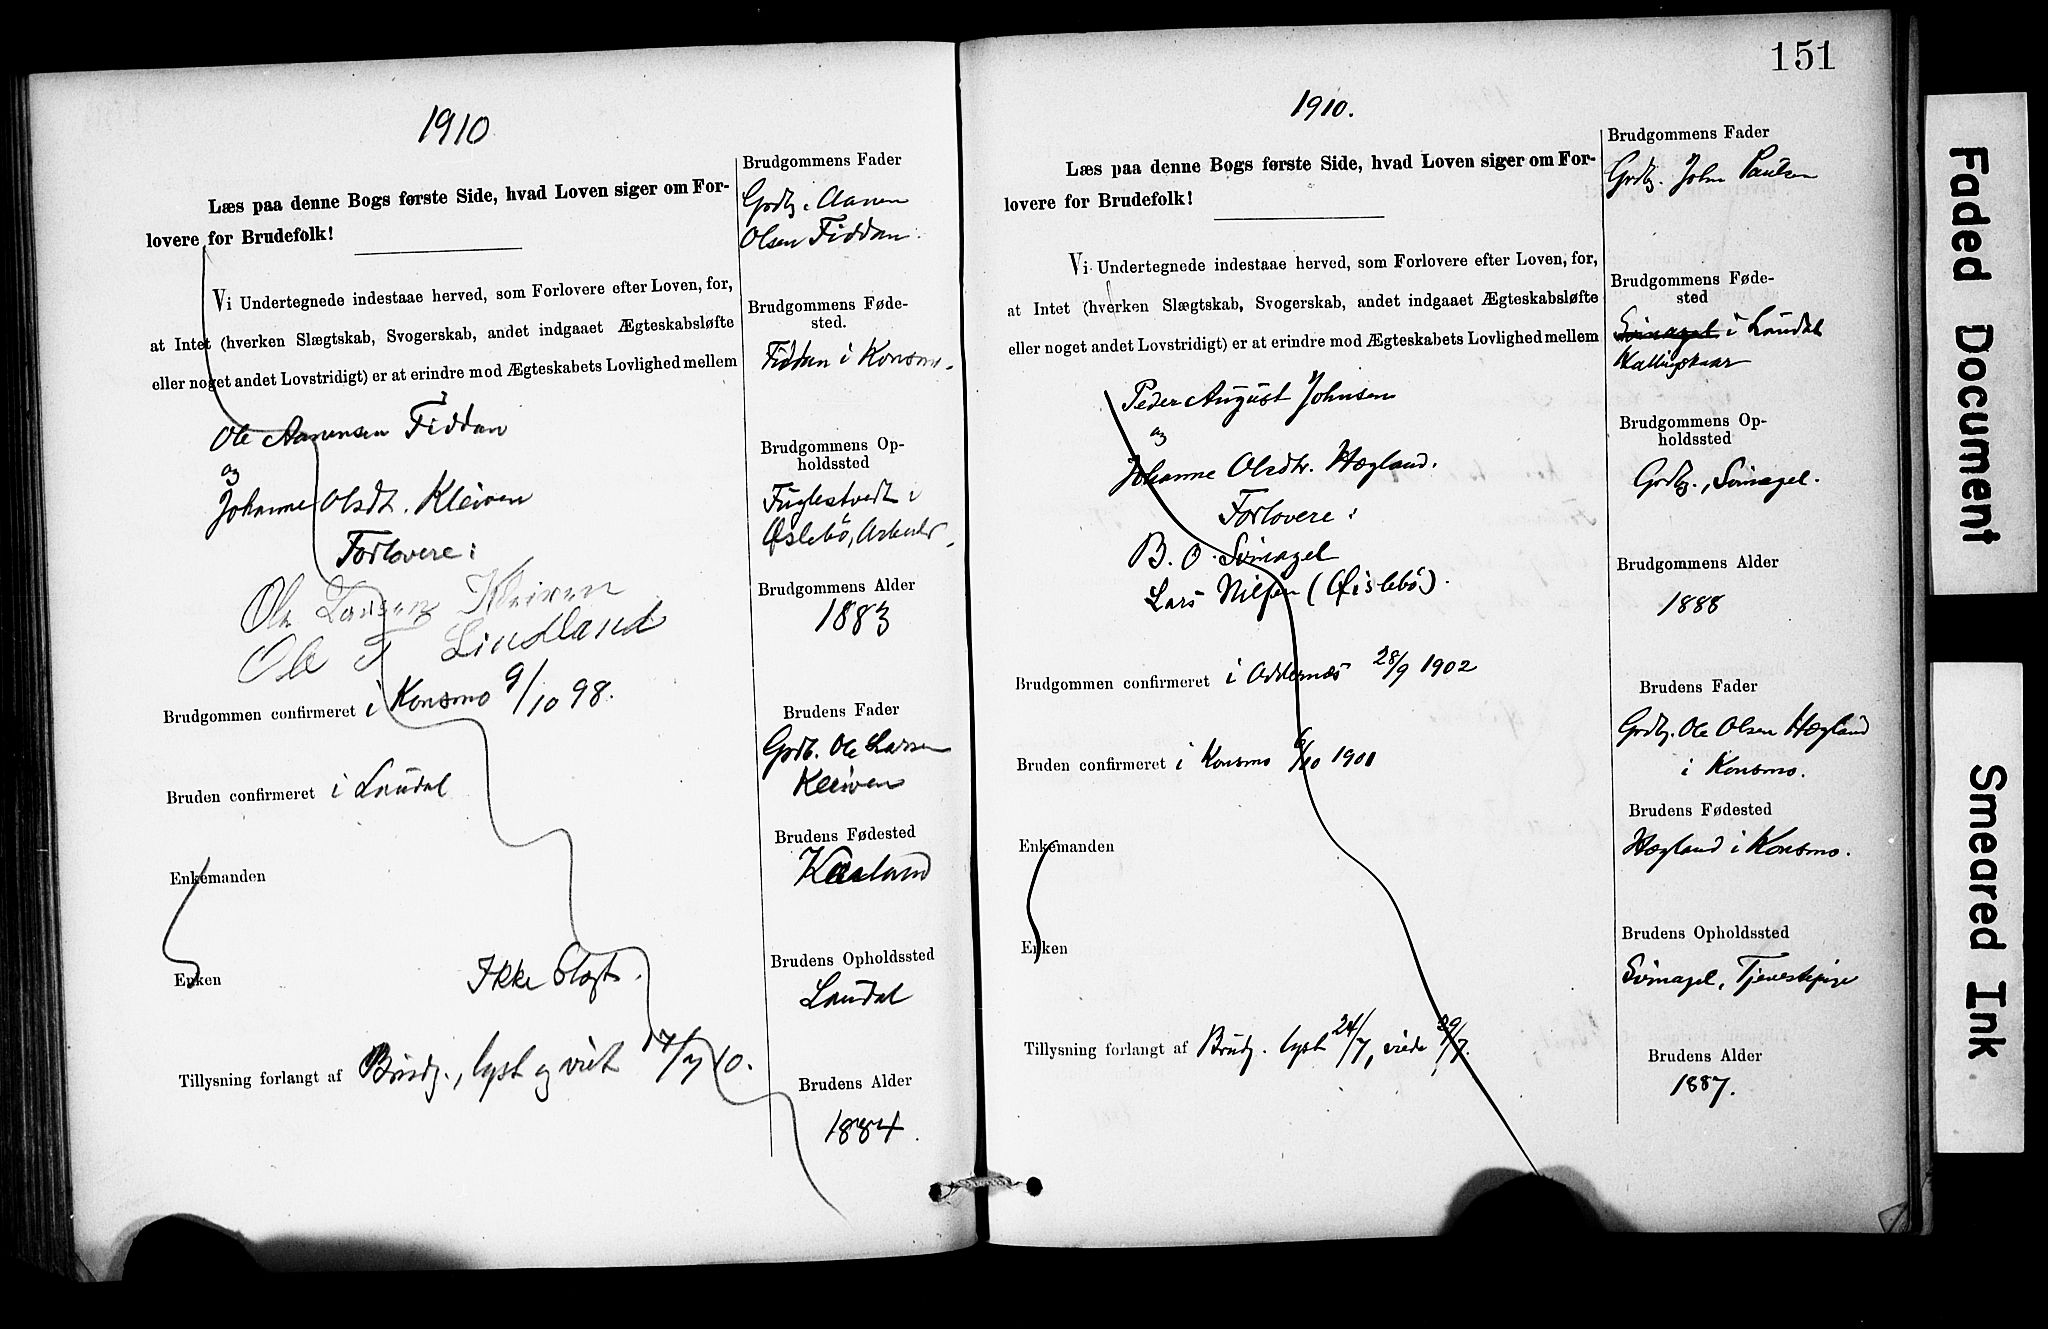 1910
Læs paa denne Bogs første Side, hvad Loven siger om For-
lovere for Brudefolk!
Vi Undertegnede indestaae herved, som Forlovere efter Loven, for,
at Intet (hverken Slægtskab, Svogerskab, andet indgaaet Ægteskabsløfte
eller noget andet Lovstridigt) er at erindre mod Ægteskabets Lovlighed mellem
Ole Aanensen Fiddan
og
Johanne Olsdt. Kleiven
Forlovere:
Ole Larsen Kleiven
Ole T Lindland
Brudgommen confirmeret i Konsmo 9/10 98.
Bruden confirmeret i Laudal
Enkemanden
Enken
Ikke Slægt.
Tillysning forlangt af Brudg., lyst og viet 17/7 10.
Brudgommens Fader
Grdbr. Aanen
Olsen Fiddan.
BrudgommensFøde-
sted.
Fiddan i Konsmo.
Brudgommens Op-
holdssted
Fuglestvedt i
Øslebö, Arbeider.
Brudgommens Alder
1883
Brudens Fader
Grdb. Ole Larsen
Kleiven
Brudens Fødested
Brudens Opholdssted
Laudal
Brudens Alder
1884.
151
1910.
Læs paa denne Bogs første Side, hvad Loven siger om For-
lovere for Brudefolk!
Vi Undertegnede indestaae herved, som Forlovere efter Loven, for,
at Intet (hverken Slægtskab, Svogerskab, andet indgaaet Ægteskabsløfte
eller noget andet Lovstridigt) er at erindre mod Ægteskabets Lovlighed mellem
Peder August Johnsen
og
Johanne Olsdtr. Hægland.
Forlovere:
B. O. Svinagel
Lars Nilsen (Øislebö).
Brudgommen confirmeret i Oddernæs 28/9 1902
Bruden confirmeret i Konsmo 6/10 1901
Enkemanden
Enken
Tillysning forlangt af Brudg. lyst 24/7, viede 29/7.
Brudgommens Fader
Grdbr. John Paulsen
Brudgommens Føde-
sted
Svinagel i Laudal
Hallingskaar
Brudgommens Op-
holdssted
Grdbr., Svinagel.
Brudgommens Alder
1888
Brudens Fader
Grdbr. Ole Olsen Hægland
i Konsmo.
Brudens Fødested
Hægland i Konsmo.
Brudens Opholdssted
Svinagel, Tjenestepige
Brudens Alder
1887.
Faded Document
Smeared Ink